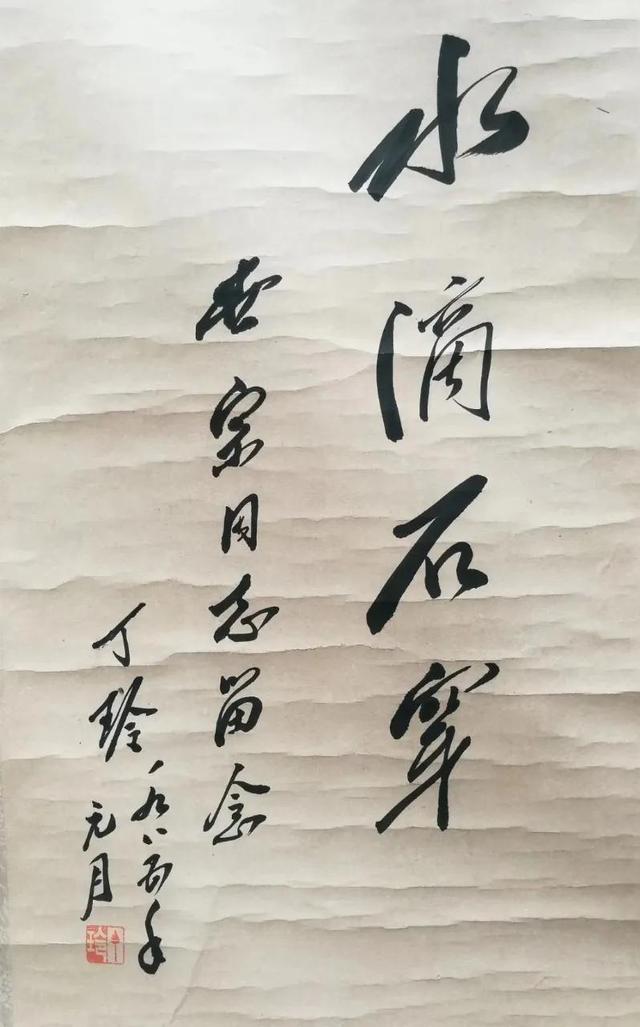 水滴石穿
世宗同志留念
丁玲一九八五年
元月
丁玲